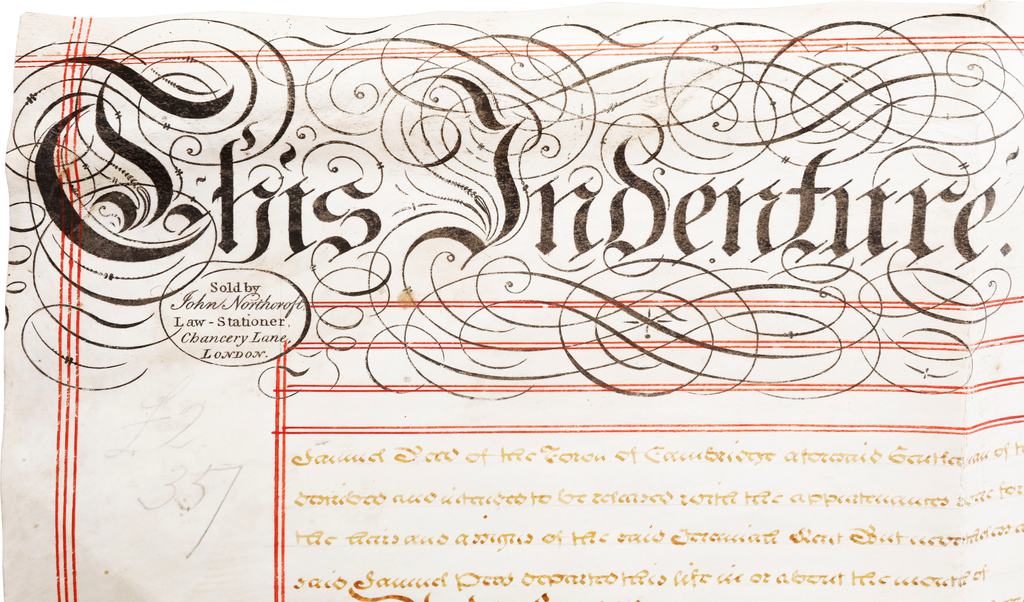 This Indenture.
Sold by
John Northcroft,
Law-Stationer,
Chancery Lane,
LONDON.
£2
357
Samuel Peed of the Town of Cambridge aforesaid Gentleman of
devised and intended to be released with the appurtenances
the heirs and assigns of the said Jeremiah But
said Samuel Peed departed this life in or about the month of